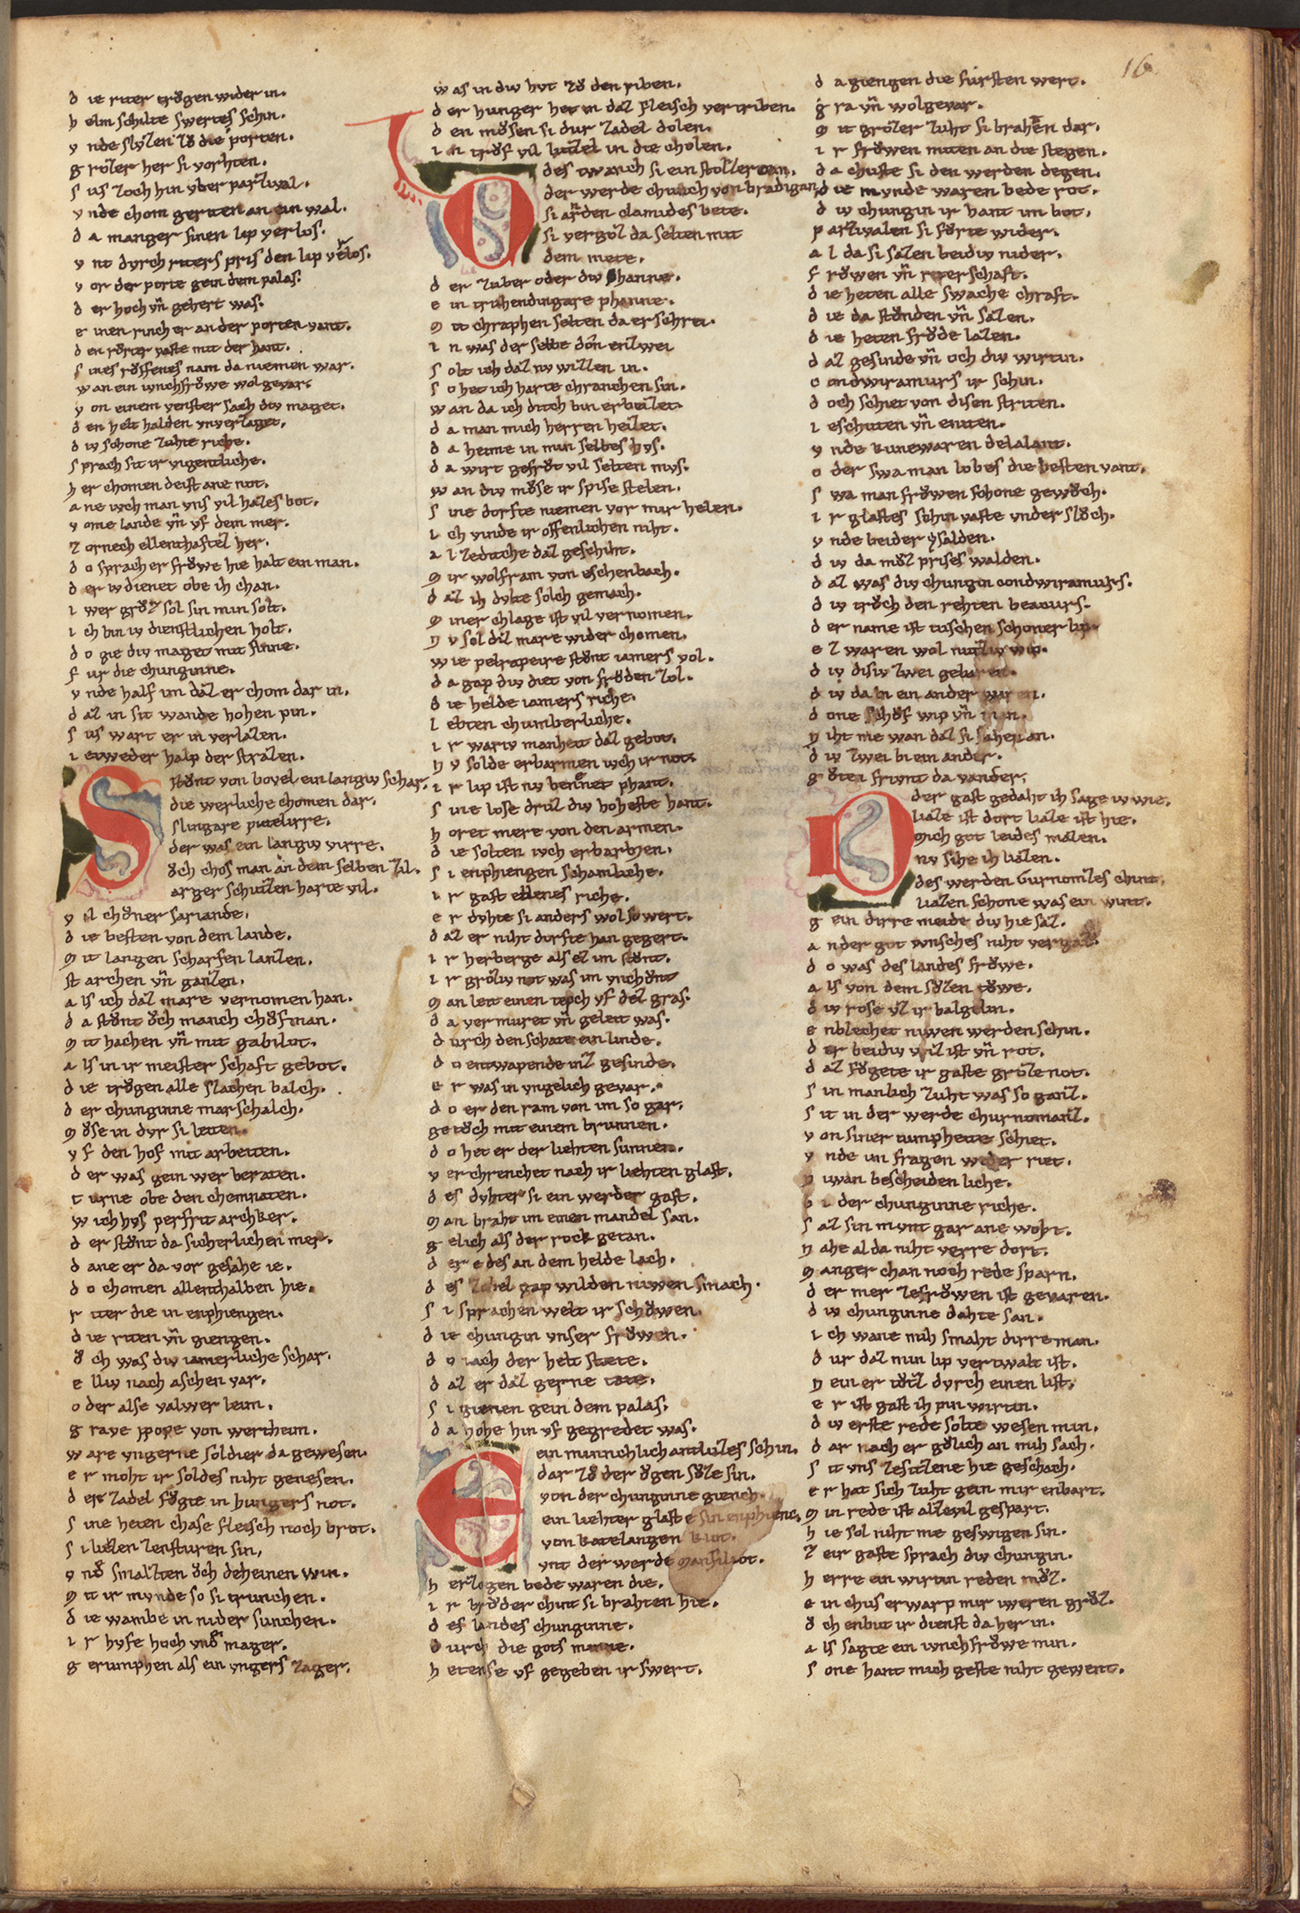 16
d ie riter trvͦgen wider in.
h elm schilte swertes schin.
v nde slvzen zvͦ die porten.
g rozer her si vorhten.
s us zoch hin vber parzival.
v nde chom geriten an ein wal.
d a manger sinen lip verlos.
v nt dvrch riters pris den lip verlos.
v or der porte gein dem palas.
d er hoch vn̄ gehert was.
e inen rinch er an der porten vant.
d en rvͦrter vaste mit der hant.
s ines rvͦffenes nam da niemen war.
w an ein ivnchfrowe wol gevar.
v on einem venster sach div maget.
d en helt halden vnverzaget.
d iv schone zuhte riche.
s prach sit ir vigentliche.
h er chomen deist ane not.
a ne ivch man vns vil hazes bot.
v ome lande vn̄ vf dem mer.
z ornech ellenthaftez her.
d o sprach er frowe hie habt ein man.
d er iv dienet obe ih chan.
i wer grvͦz sol sin min solt.
i ch bin iv dienstlichen holt.
d o gie div maget mit sinne.
f ur die chunginne.
v nde half im daz er chom dar in.
d az in sit wande hohen pin.
s us wart er in verlazen.
i etweder halp der strazen.
S stvͦnt von bovel ein langiv schar.
die werliche chomen dar.
slingare patelirre.
der was ein langiv virre.
ovch chos man an dem selben zil.
arger schutzen harte vil.
v il chvͦner sariande.
d ie besten von dem lande.
m it langen scharfen lanzen.
st archen vn̄ ganzen.
a ls ich daz mare vernomen han.
d a stvͦnt ovch manch chovfman.
m it hachen vn̄ mit gabilot.
a ls in ir meisterschaft gebot.
d ie trvͦgen alle slachen balch.
d er chunginne marschalch.
m vͦse in dvr si leiten.
v f den hof mit arbeiten.
d er was gein wer beraten.
t urne obe den chemnaten.
w ichhvs perfrit archker.
d er stvͦnt da sicherlichen mer.
d ane er da vor gesahe ie.
d o chomen allenthalben hie.
r iter die in enphiengen.
d ie riten vn̄ giengen.
ov ch was div iamerliche schar.
e lliv nach aschen var.
o der alse valwer leim.
g rave poppe von wertheim.
w are vngerne soldier da gewesen.
e r moht ir soldes niht genesen.
d er zadel fvͦgte in hungers not.
s ine heten chase fleisch noch brot.
s i liezen zensturen sin.
v nd smalzten ovch deheinen win.
m it ir mvnde so si trunchen.
d ie wambe in nider sunchen.
i r hvfe hoch vnd mager.
g erumphen als ein vngers zager.
w as in div hvt zvͦ den riben.
d er hunger het in daz fleisch vertriben.
d en mvͦsen si dur zadel dolen.
i n trovf vil lutzel in die cholen.
D des twanch si ein stolzer man.
der werde chunch von bradigan.
si arnden clamides bete.
si vergoz da selten mit
dem mete.
d er zuber oder div channe.
e in truhendingare phanne.
m it chraphen selten da erschrei.
i n was der selbe don enzwei.
s olt ich daz nv wizzen in.
s o het ich harte chranchen sin.
w an da ich diche bin erbeizet.
d a man mich herren heizet.
d a heime in min selbes hvs.
d a wirt gefrovt vil selten mvs.
w an div mvͦse ir spise stelen.
s ine dorfte niemen vor mir helen.
i ch vinde ir offenlichen niht.
a l zediche daz geschiht.
m ir wolfram von eschenbach.
d az ih dvlte solch gemach.
m iner chlage ist vil vernomen.
n v sol diz mare wider chomen.
w ie pelrapeire stvͦnt iamers vol.
d a gap div diet von frovden zol.
d ie helde iamers riche.
l ebten chumberliche.
i r wariv manheit daz gebot.
n v solde erbarmen ivch ir not.
i r lip ist nv bennet phant.
s ine lose drvz div hoheste hant.
h oret mere von den armen.
d ie solten ivch erbarmen.
s i enphiengen schamliche.
i r gast ellenes riche.
e r dvhte si anders wol so wert.
d az er niht dorfte han gegert.
i r herberge als ez im stvͦnt.
i r groziv not was im vnchvnt
m an leit einen tepch vf dez gras.
d a vermuret vn̄ geleit was.
d urch den schate ein linde.
d o entwapende inz gesinde.
e r was in vngelich gevar.
d o er den ram von im so gar.
getovch mit einem brunnen.
d o het er der liehten sunnen.
v erchrenchet nach ir liehten glast.
d es dvhter si ein werder gast.
m an braht im einen mandel san.
g elich als der rock getan.
d er e des an dem helde lach.
d es zobel gap wilden niwen smach.
s i sprachen welt ir schowen.
d ie chungin vnser frowen.
d o iach der helt stæte.
d az er daz gerne tæte.
s i giengen gein dem palas.
d a hohe hin vf gegredet was.
E ein minnchlich antlutzes schin.
dar zvͦ der ovgen svͦze sin.
von der chunginne giench.
ein liehter glast e sin enphiench.
von katelangen kiot.
vnt der werde manfiliot.
h erzogen bede waren die.
i r brvͦder chint si brahten hie.
d es landes chunginne.
d urch die gots minne.
h etense vf gegeben ir swert.
d a giengen die fursten wert.
g ra vn̄ wolgevar.
m it grozer zuht si brahten dar.
i r frowen miten an die stegen.
d a chuste si den werden degen.
d ie mvnde waren bede rot.
d iv chungin ir hant im bot.
p arzivalen si fvͦrte wider.
a l da si sazen beidiv nider.
f rowen vn̄ riterschaft.
d ie heten alle swache chraft.
d ie da stvͦnden vn̄ sazen.
d ie heten frovde lazen.
d az gesinde vn̄ och div wirtin.
c ondwiramurs ir schin.
d och schiet von disen striten.
i eschuten vn̄ eniten.
v nde kunewaren delalant.
o der swa man lobes die besten vant.
s wa man frowen schone gewovch.
i r glastes schin vaste vnder slvͦch.
v nde beider ysalden.
d iv da mvͦz prises walden.
d az was div chungin condwiramurs.
d iv trvͦch den rehten beacurs.
d er name ist tuschen schoner lip.
e z waren wol nutziv wip.
d iv disiv zwei gebaren.
d iv da bi ein ander waren.
d one schovf wip vn̄ man.
n iht me wan daz si sahen an.
d iv zwei bi ein ander.
g vͦten frivnt da vander.
D der gast gedaht ih sage iv wie.
liaze ist dort liaze ist hie.
mich got leides mazen.
nv sihe ih liazen.
des werden Gurnomzes chint.
liazen schone was ein wint.
g ein dirre meide div hie saz.
a nder got wnsches niht vergaz.
d o was des landes frowe.
a ls von dem svͦzen towe.
d iv rose vz ir balgelin.
e nblechet niwen werden schin.
d er beidiv wiz ist vn̄ rot.
d az fvͦgete ir gaste groze not.
s in manlich zuht was so ganz.
s it in der werde churnomanz.
v on siner tumpheite schiet.
v nde im fragen wider riet.
n iwan bescheidenliche.
b i der chunginne riche.
s az sin mvnt gar ane wort.
n ahe al da niht verre dort.
m anger chan noch rede sparn.
d er mer zefrowen ist gevaren.
d iv chunginne dahte san.
i ch wane mih smaht dirre man.
d ur daz min lip vertwalt ist.
n ein er tvͦtz dvrch einen list.
e r ist gast ih pin wirtin.
d iv erste rede solte wesen min.
d ar nach er gvͦtlich an mih sach.
s it vns zesitzene hie geschach.
e r hat sich zuht gein mir enbart.
m in rede ist alzevil gespart.
h ie sol niht me geswigen sin.
z eir gaste sprach div chungin.
h erre ein wirtin reden mvͦz.
e in chus erwarp mir iweren grvͦz.
ov ch enbut ir dienst da her in.
a ls sagte ein ivnchfrowe min.
s one hant mich geste niht gewent.